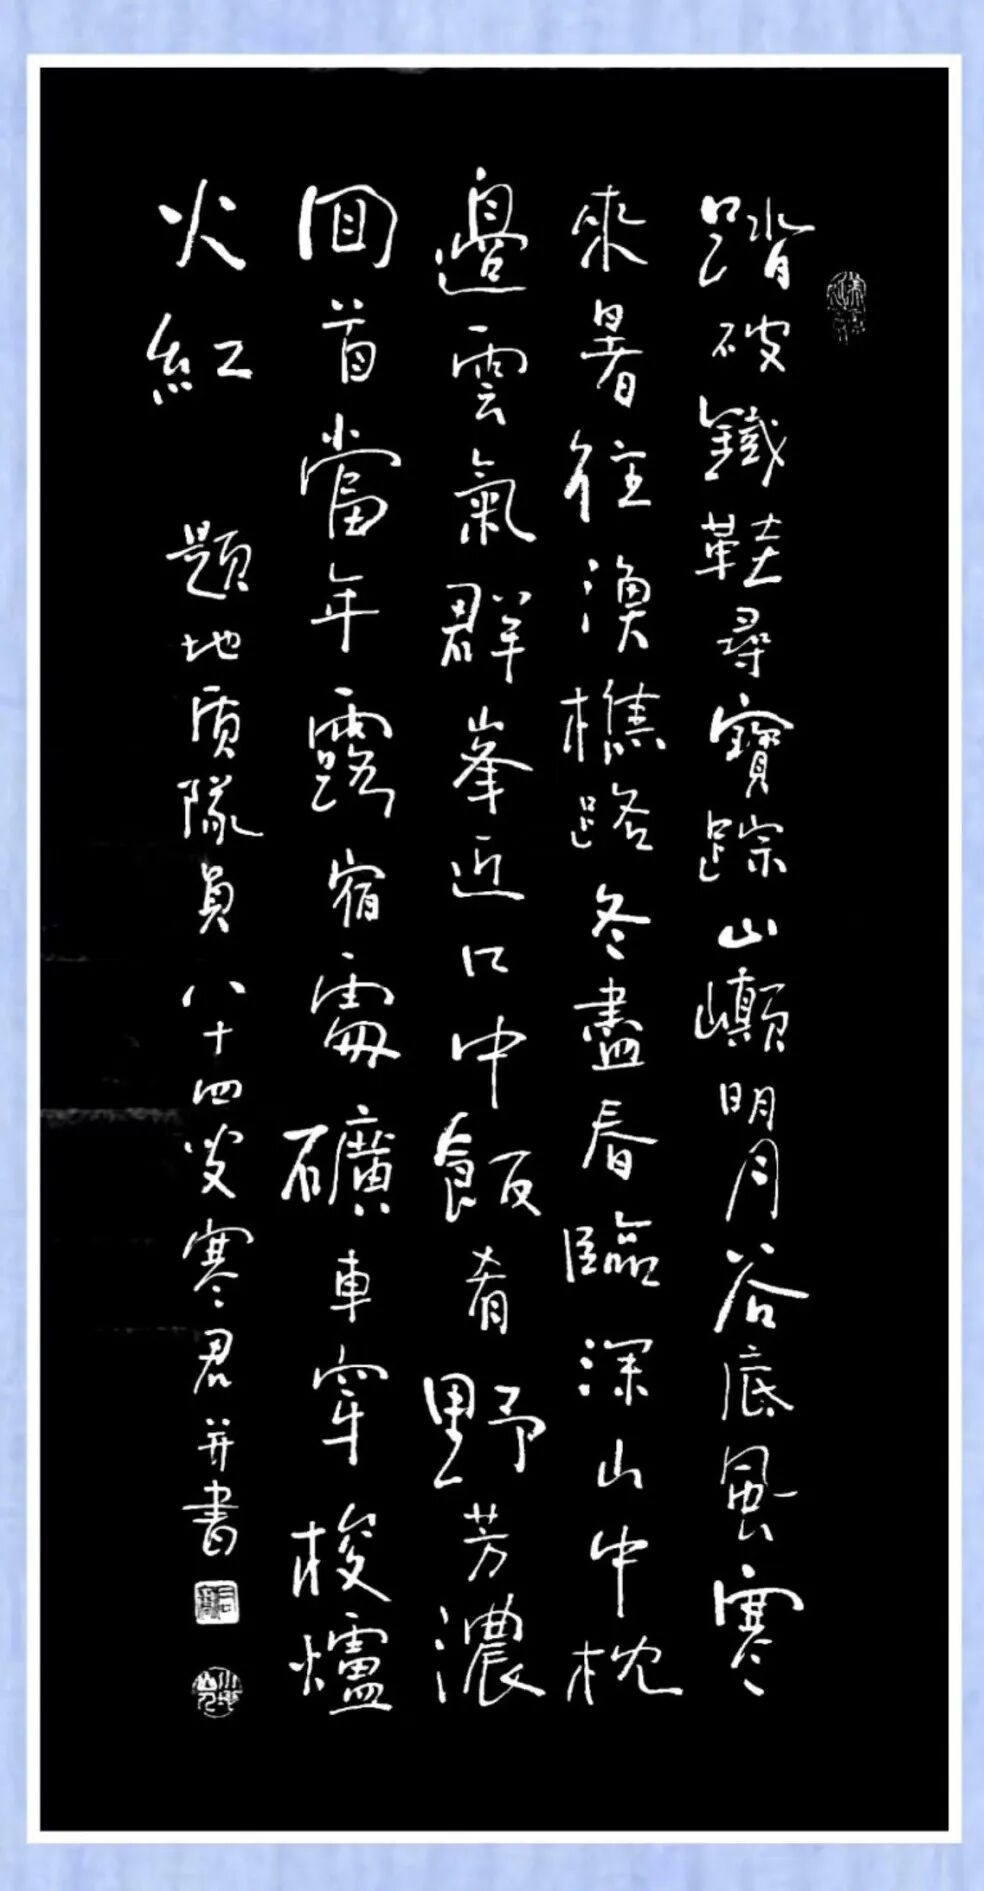 踏破鐵鞋尋寶踪山巔明月谷底風寒
來暑往漁樵路冬盡春臨深山中枕
邊雲氣群峯近口中飯肴野芳濃
回首當年露宿處礦車穿梭爐
火紅
題地質隊員八十四叟寒君并書